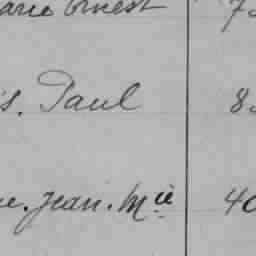 arie Ernest 7
s. Paul 8
e. Jean. Mie 40